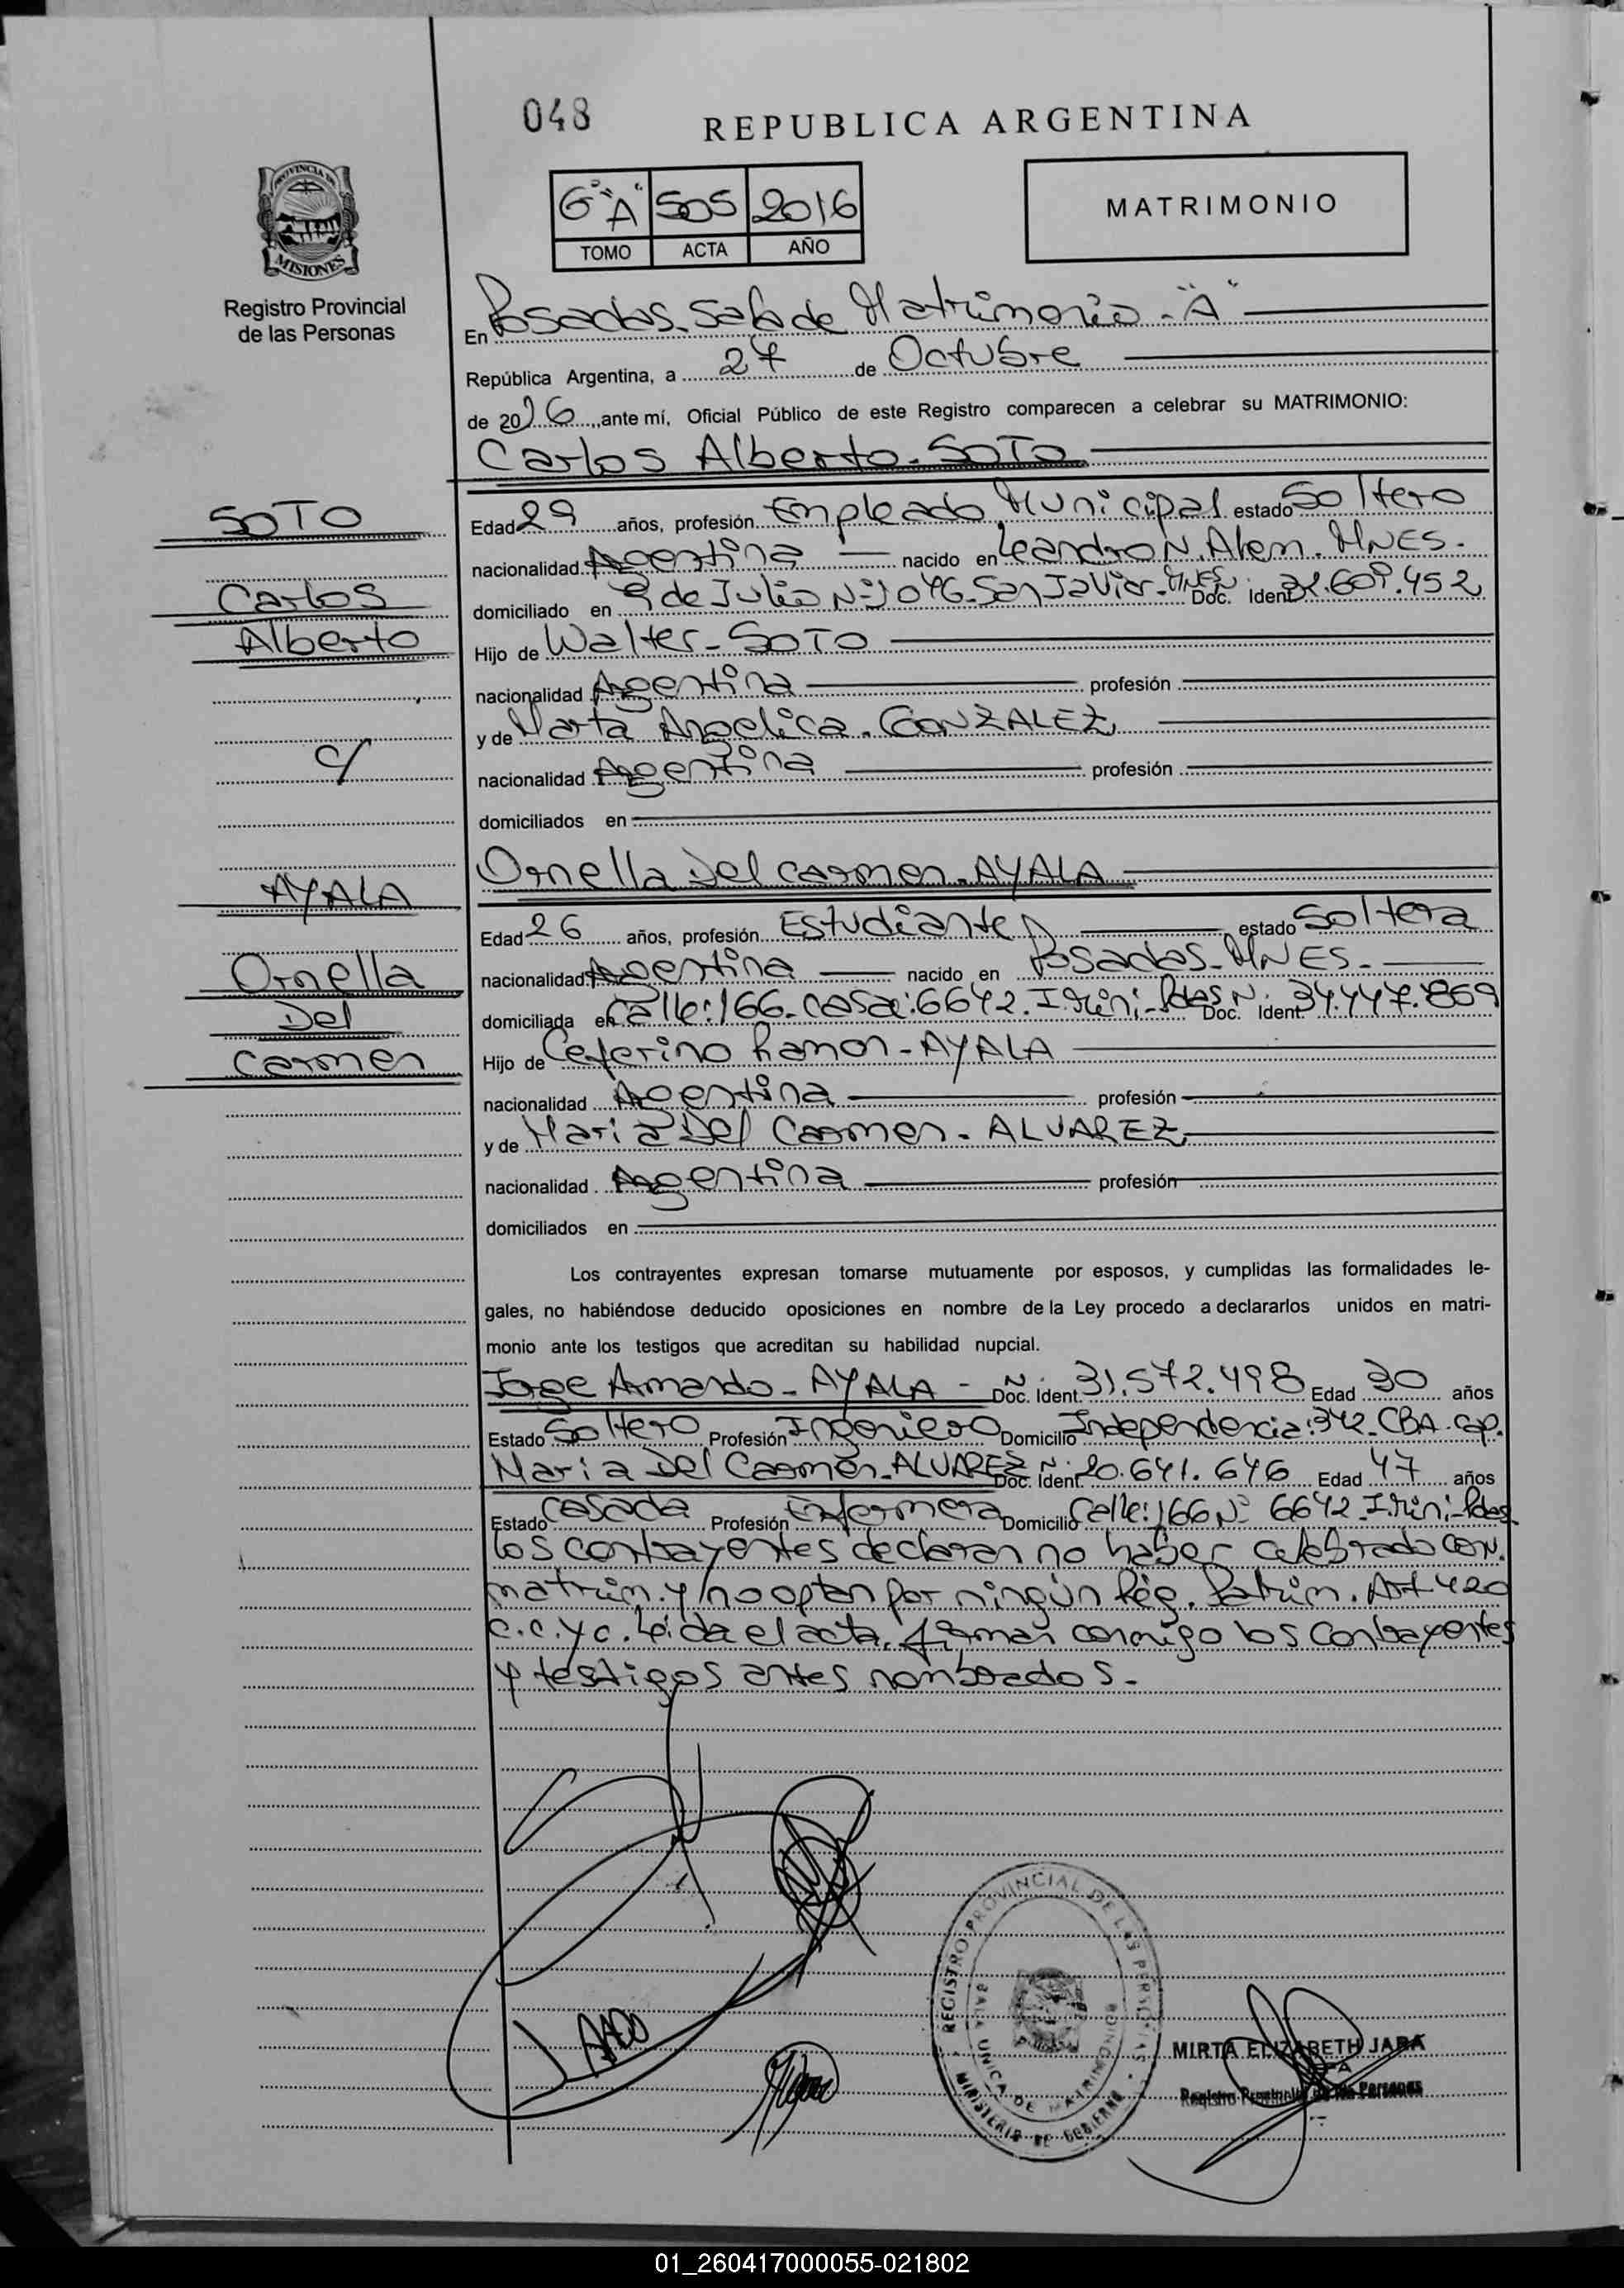 048
REPUBLICA ARGENTINA
PROVINCIA DE MISIONES
Registro Provincial
de las Personas
6° "A" 505 2016
TOMO ACTA AÑO
MATRIMONIO
En Posadas. Sala de Matrimonio - "A"
República Argentina, a 27 de Octubre
de 2016, ante mí, Oficial Público de este Registro comparecen a celebrar su MATRIMONIO:
Carlos Alberto - SOTO
SOTO
Carlos
Alberto
c/
AYALA
Ornella
Del
Carmen
Edad 29 años, profesión Empleado Municipal estado Soltero
nacionalidad Argentina nacido en Leandro N. Alem. MNES.
domiciliado en 9 de Julio N° 1046. San Javier - MNES Doc. Ident 32.609.452
Hijo de Walter - SOTO
nacionalidad Argentina profesión
y de Marta Angelica. GONZALEZ
nacionalidad Argentina profesión
domiciliados en
Ornella Del Carmen - AYALA
Edad 26 años, profesión Estudiante estado Soltera
nacionalidad Argentina nacido en Posadas - MNES -
domiciliada en Calle: 166. Casa: 6642. I. Guini - Pdas N° Doc. Ident 34.447.869
Hijo de Ceferino Ramon - AYALA
nacionalidad Argentina profesión
y de Maria Del Carmen - ALVAREZ
nacionalidad Argentina profesión
domiciliados en
Los contrayentes expresan tomarse mutuamente por esposos, y cumplidas las formalidades le-
gales, no habiéndose deducido oposiciones en nombre de la Ley procedo a declararlos unidos en matri-
monio ante los testigos que acreditan su habilidad nupcial.
Jorge Armando - AYALA - N° Doc. Ident. 31.572.498 Edad 30 años
Estado Soltero Profesión Ingeniero Domicilio Independencia: 342. CBA. Cap.
Maria Del Carmen - ALVAREZ N° Doc. Ident 20.641.646 Edad 47 años
Estado Casada Profesión Enfermera Domicilio Calle: 166 N° 6642 - Pdas
los contrayentes declaran no haber celebrado CON.
matrim. y no optan por ningún Rég. Patrim. Art 420
C.C.y C. Leida el acta, firman conmigo los contrayentes
y testigos antes nombrados -
REGISTRO PROVINCIAL DE LAS PERSONAS
SALA UNICA DE MATRIMONIOS
MINISTERIO DE GOBIERNO
MIRTA ELIZABETH JARA
Registro Provincial de las Personas
01_260417000055-021802